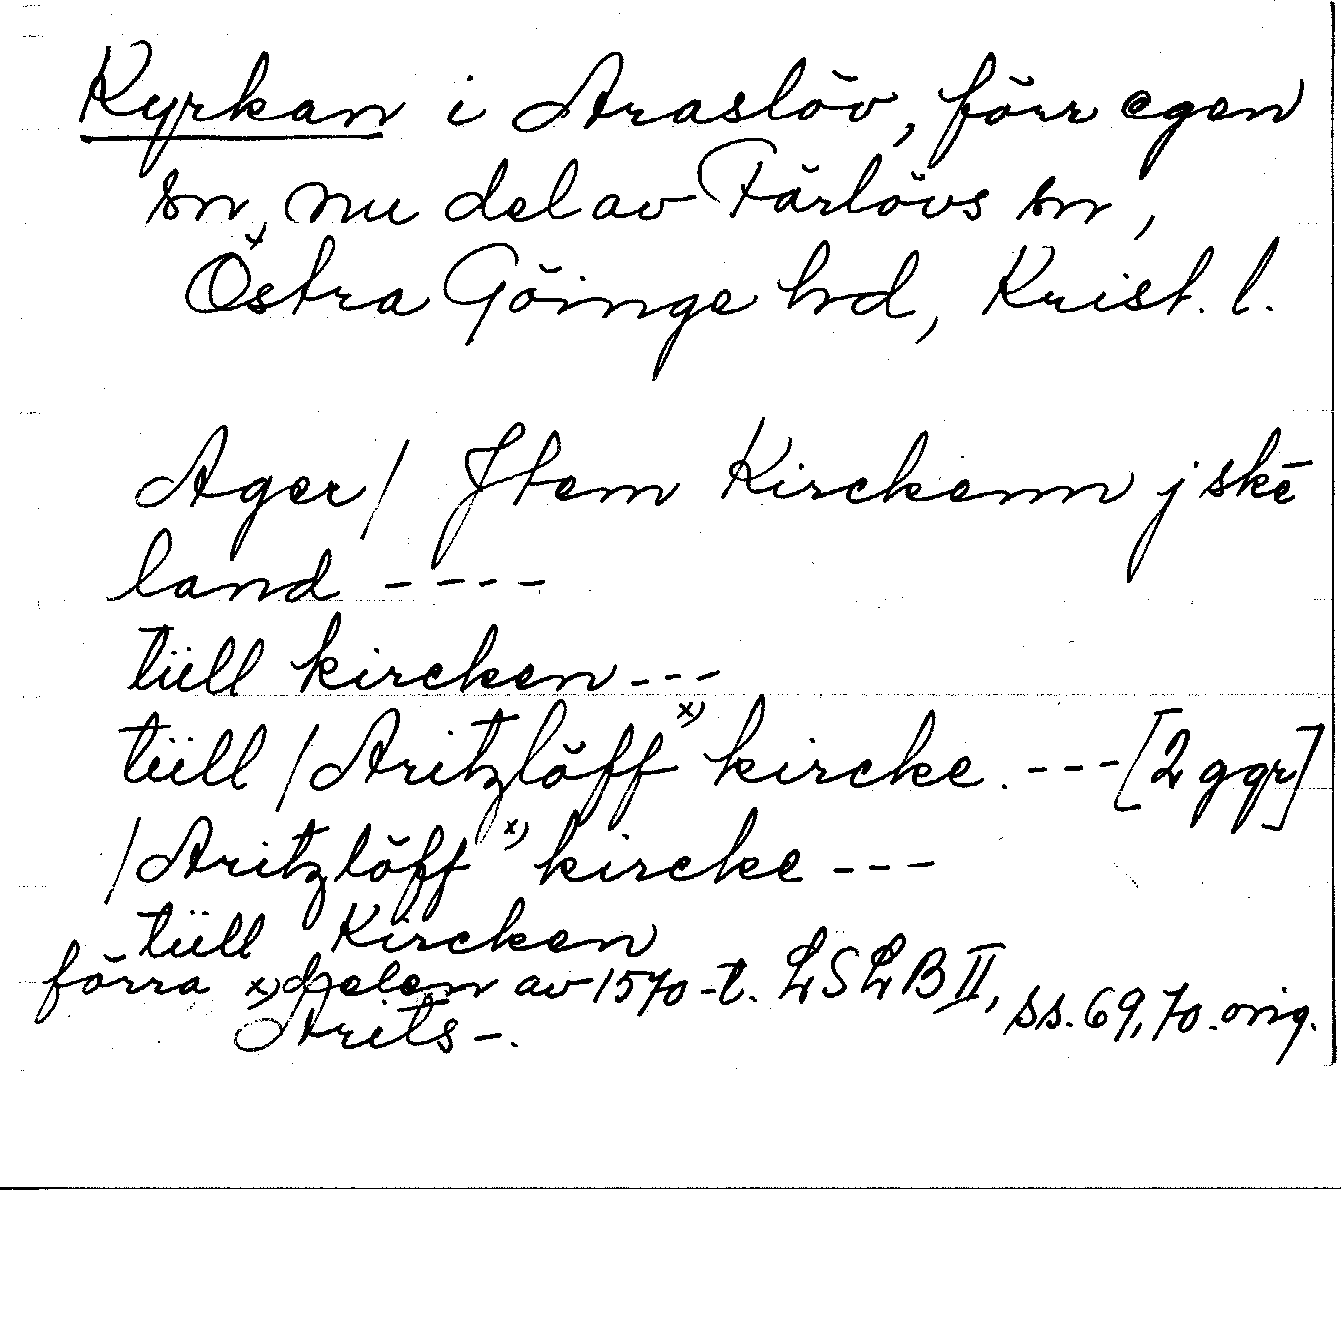 Kyrkan i Araslöv, förr egen
sn, nu del av Färlövs sn,
Östra Göinge hd, Krist. l.
Ager/ Jtem Kirckenn j skē
land ----
tüll kircken ---
tüll /Aritzlöff x) kircke. --- [2 ggr]
/Aritzlöff x) kircke ---
tüll Kircken
förra delen av 1570-t. LSLB II, ss. 69, 70. orig.
x) Arits-.